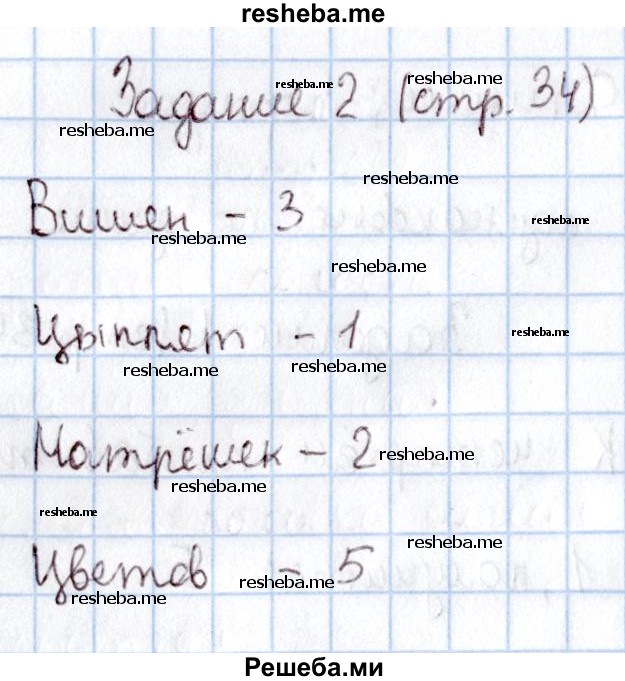 resheba.me
Задание 2 (стр. 34)
resheba.me
resheba.me
resheba.me
resheba.me
Вишен - 3
resheba.me
resheba.me
resheba.me
Цыплят - 1
resheba.me
resheba.me
resheba.me
Матрёшек - 2
resheba.me
resheba.me
resheba.me
Цветов - 5
resheba.me
resheba.me
resheba.me
Решеба.ми